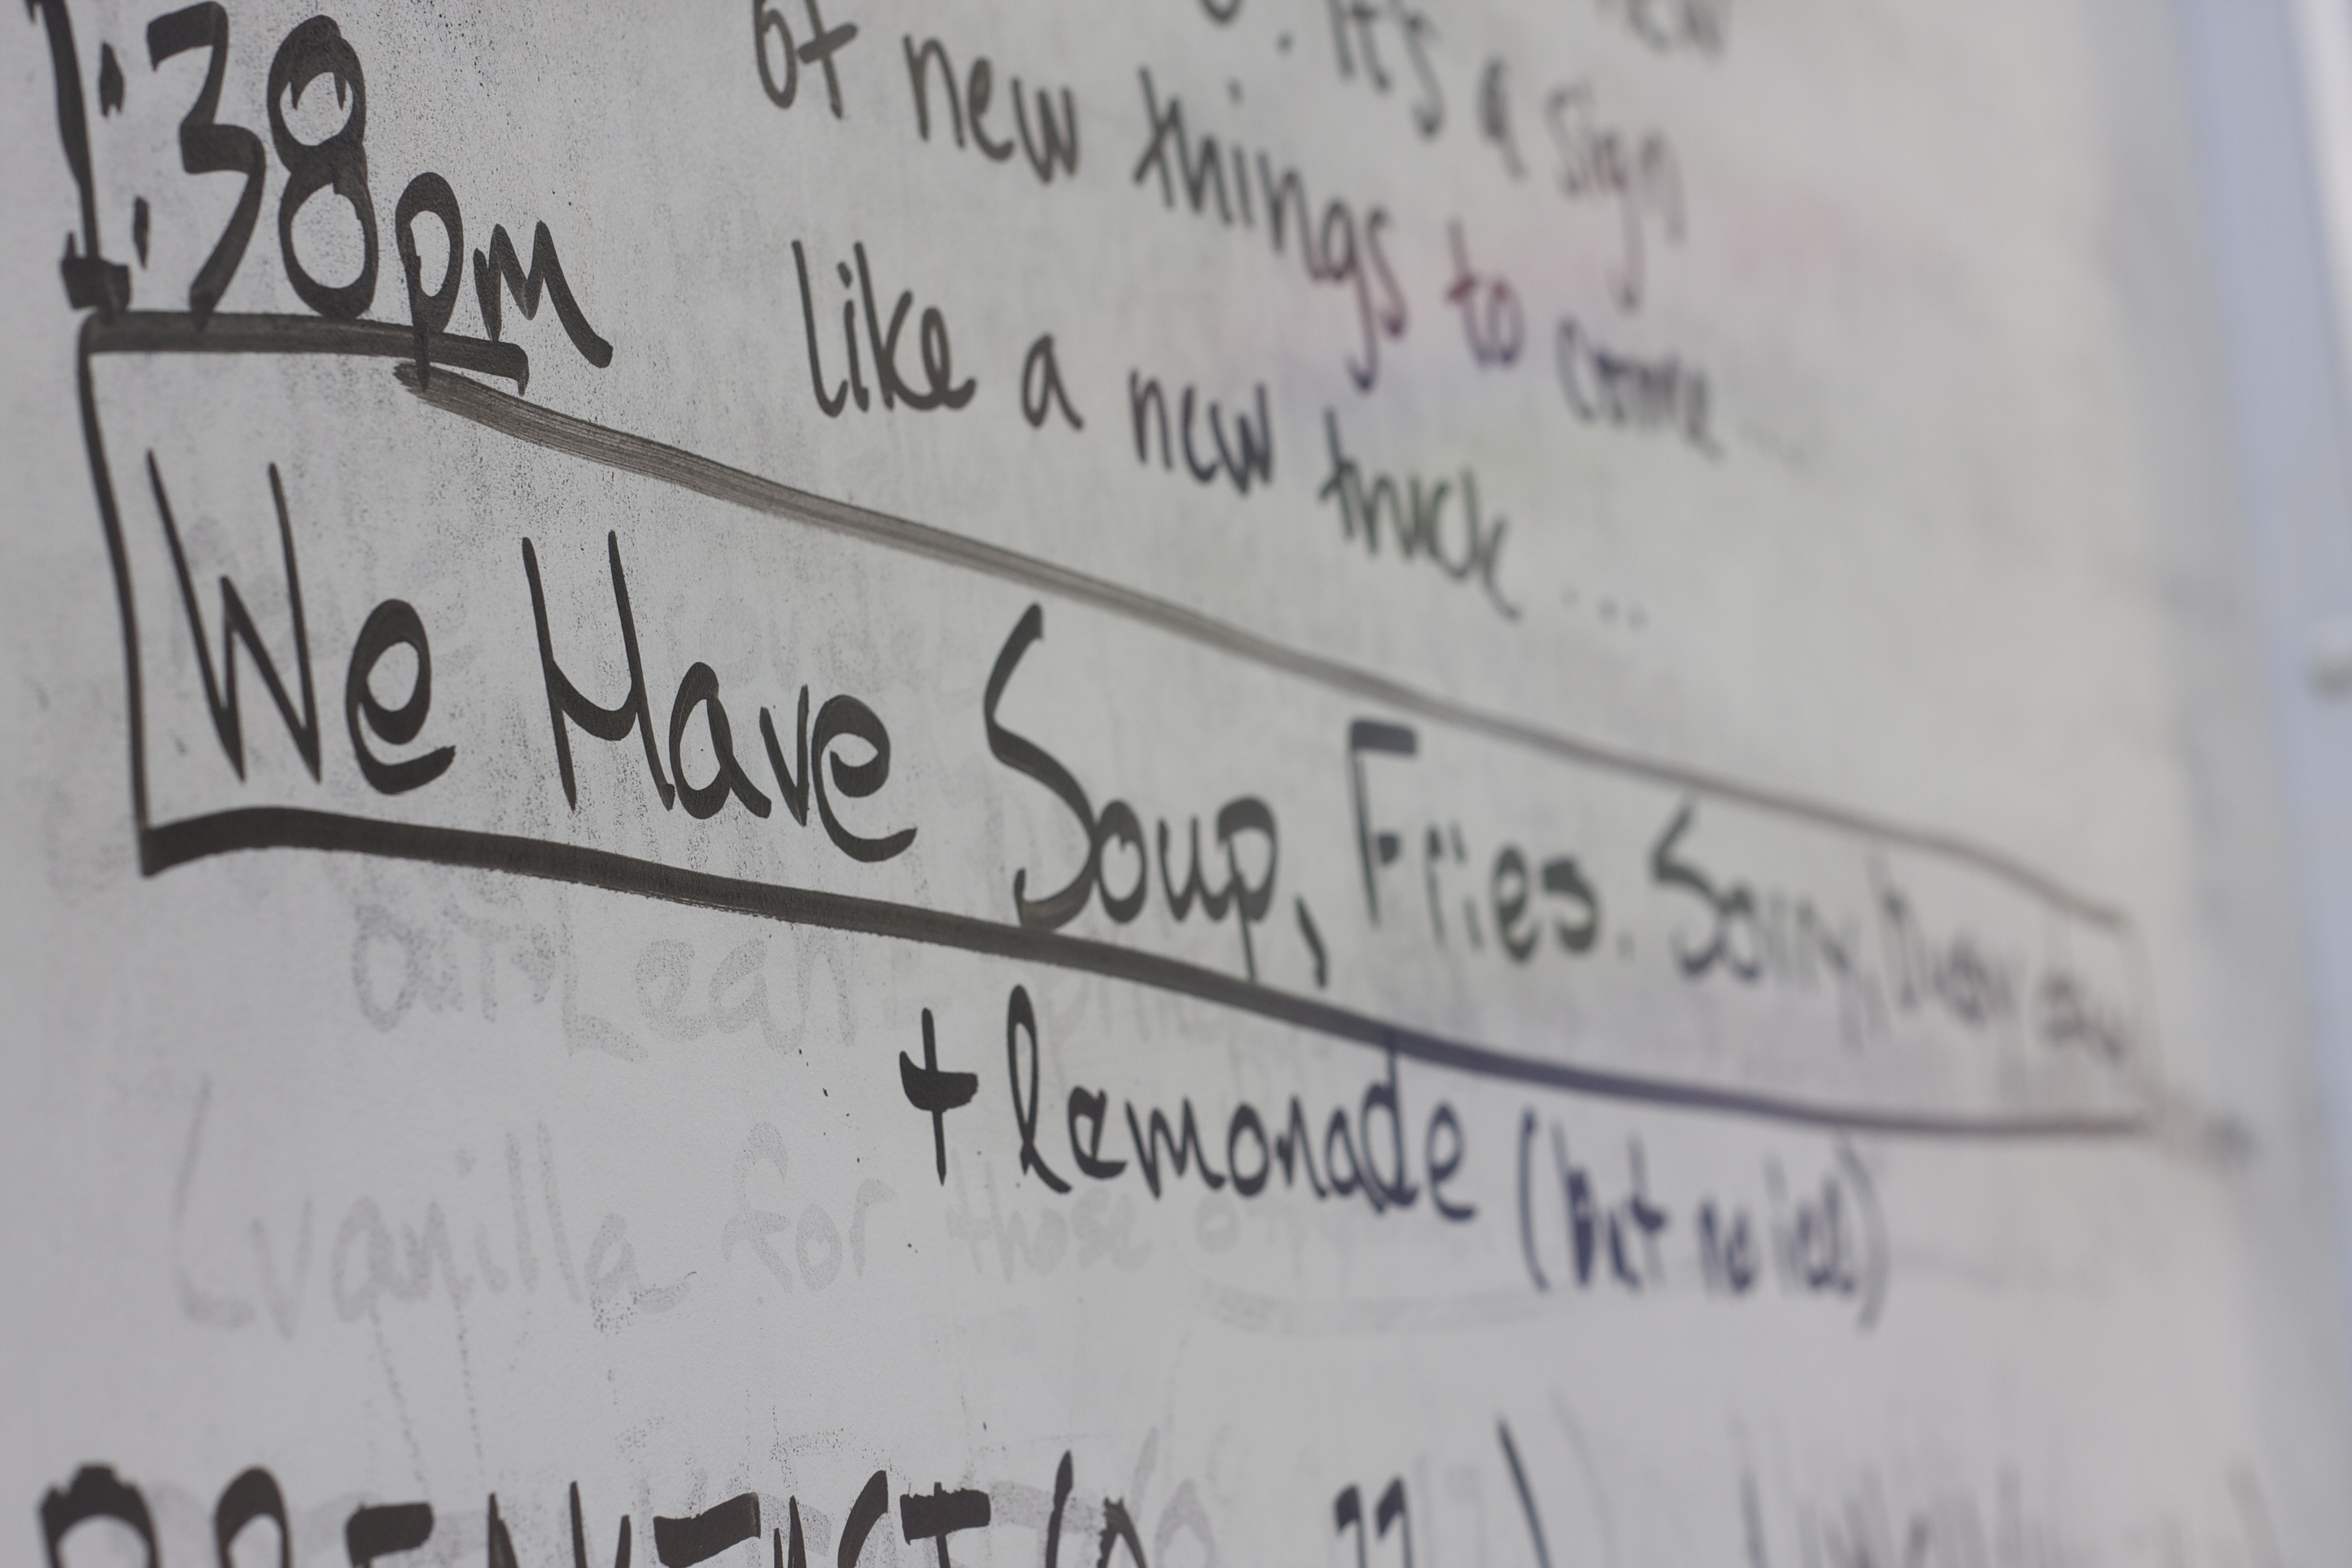 1:38pm
It's a sign
of new things to come...
like a new truck...
We Have Soup, Fries. Sorry,
+ lemonade (but no ice)
at Lean
vanilla for those
BREAKFAST